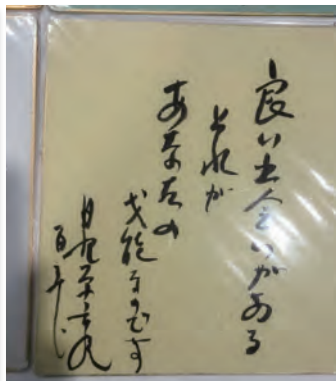 良い出会いがある
それが
あなたの
才能なのです